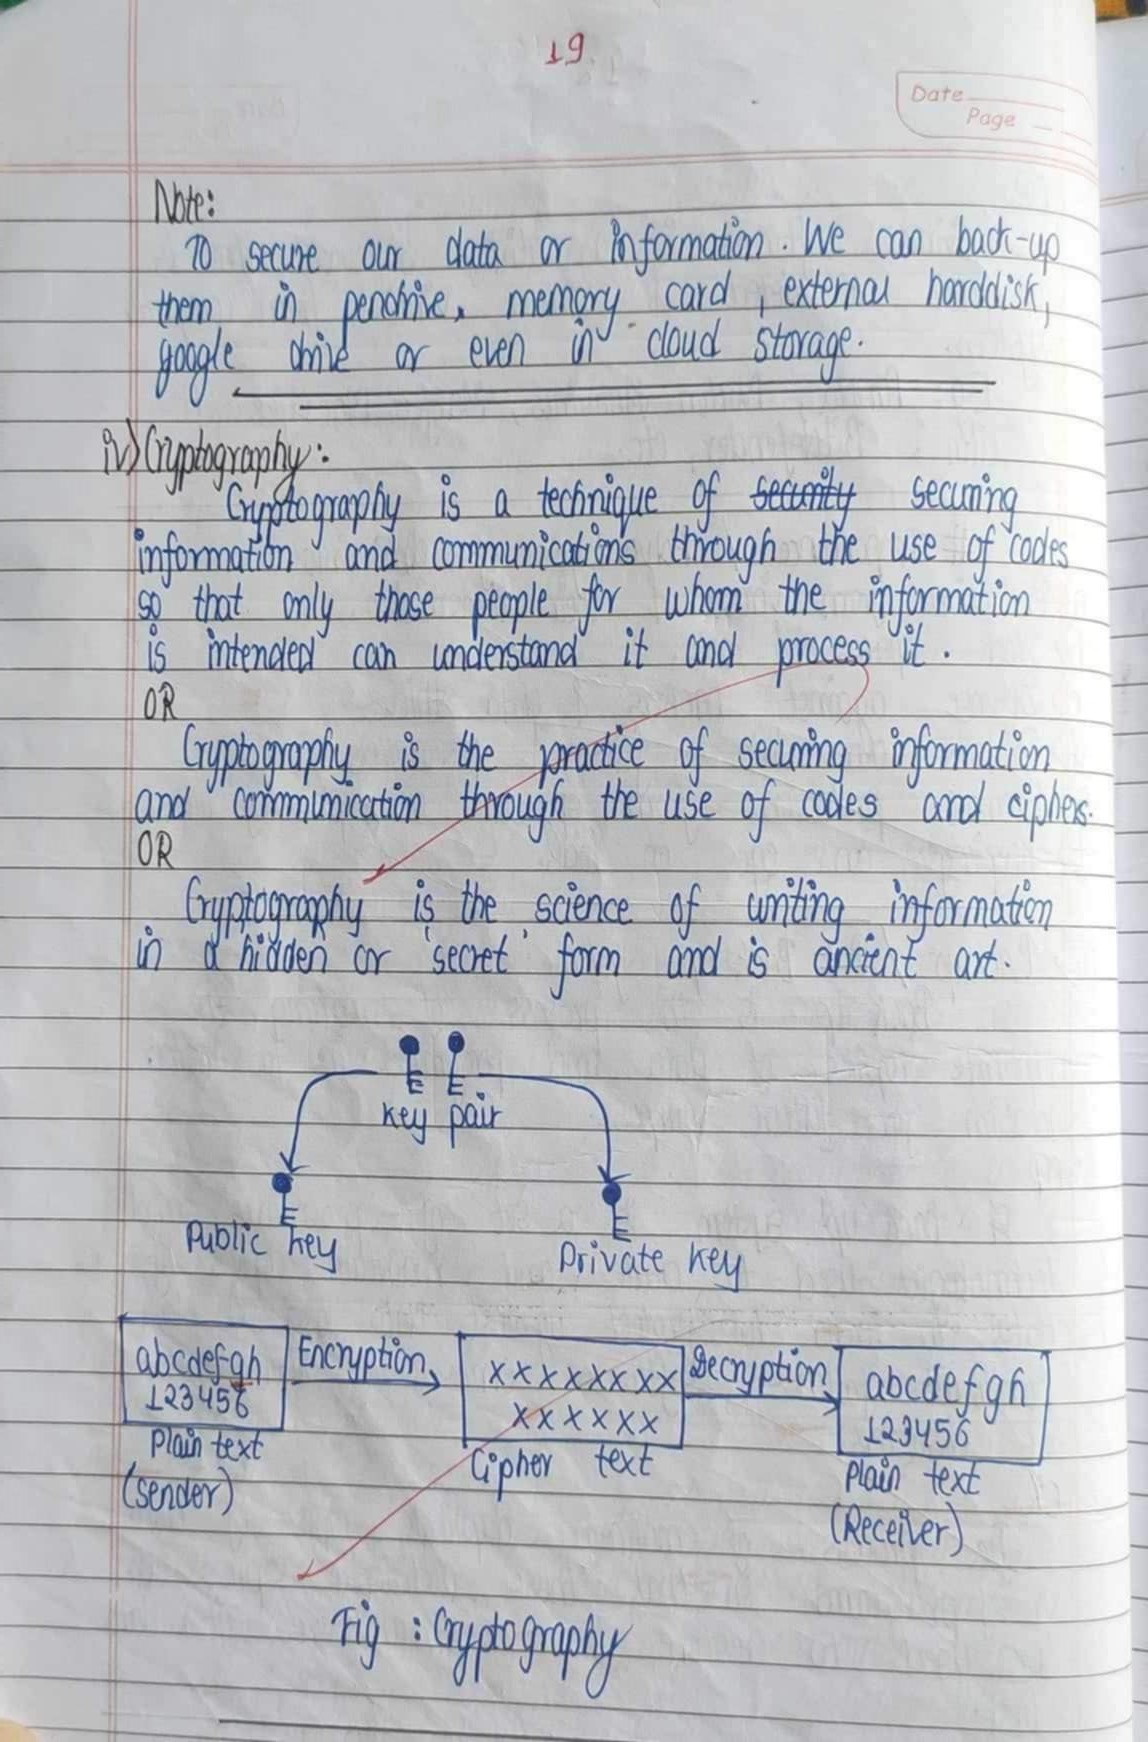 19
Date
Page
Note:
To secure our data or information. We can back-up
them in pendrive, memory card, external harddisk,
google drive or even in cloud storage.
iv) Cryptography:
Cryptography is a technique of security securing
information and communications through the use of codes
so that only those people for whom the information
is intended can understand it and process it.
OR
Cryptography is the practice of securing information
and communication through the use of codes and ciphers.
OR
Cryptography is the science of writing information
in a hidden or 'secret' form and is ancient art.
key pair
Public key
Private key
abcdefgh
123456
Encryption
xxxxxxxx
xxxxxx
Decryption
abcdefgh
123456
Plain text
(Sender)
Cipher text
Plain text
(Receiver)
Fig : Cryptography